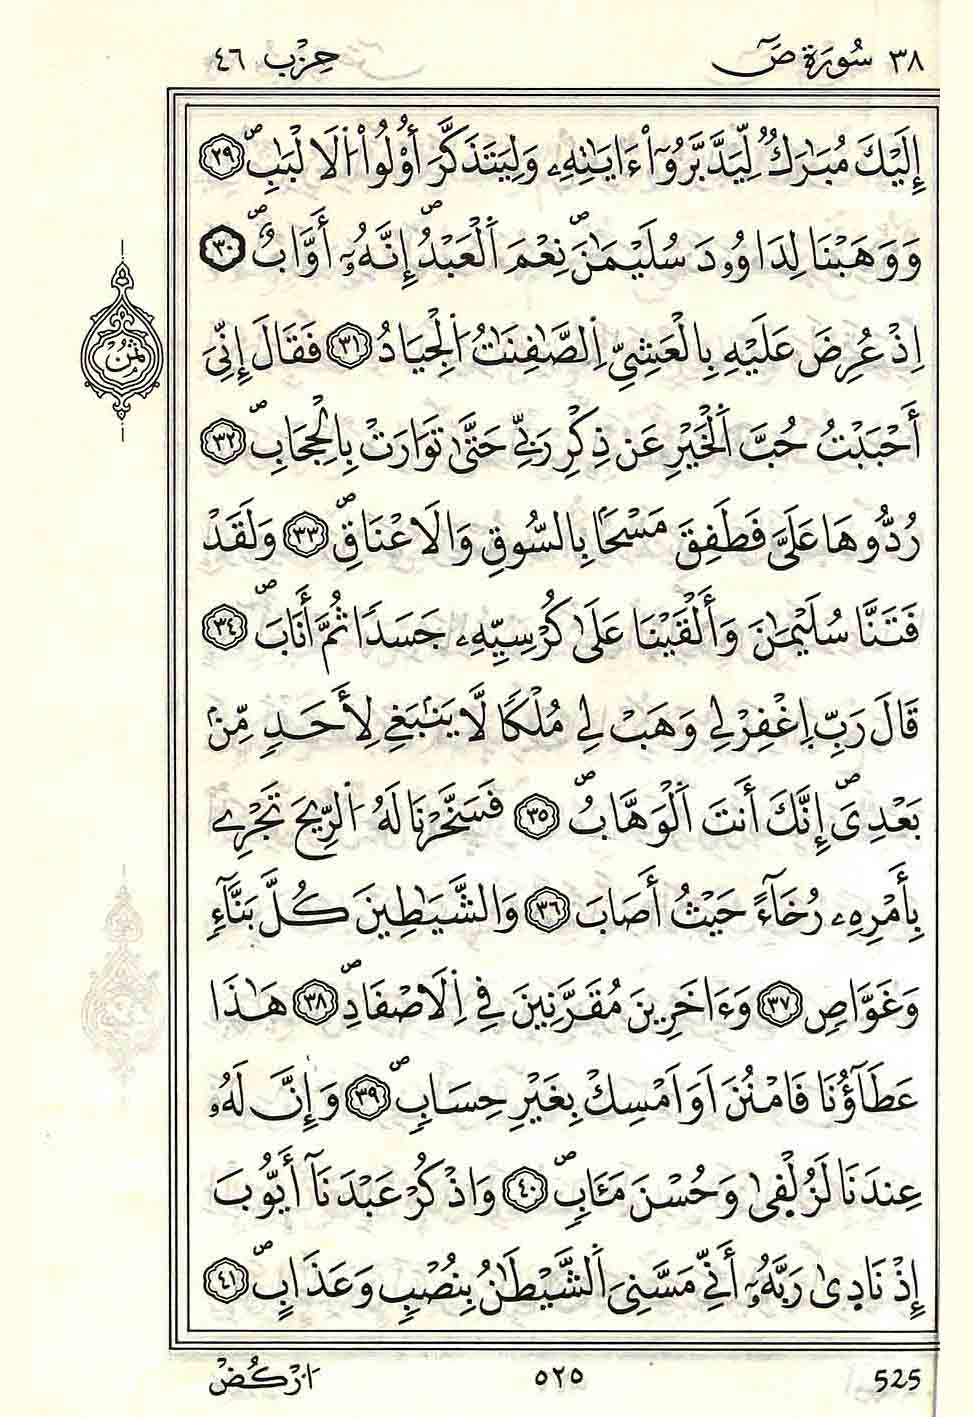 ٣٨ سُورَةُ صٓ حِزْب ٤٦
إِلَيْكَ مُبَٰرَكٞ لِّيَدَّبَّرُوٓاْ ءَايَٰتِهِۦ وَلِيَتَذَكَّرَ أُوْلُواْ اُ۬لَالْبَٰبِۖ ٢٩
وَوَهَبْنَا لِدَاوُۥدَ سُلَيْمَٰنَۖ نِعْمَ اَ۬لْعَبْدُۖ إِنَّهُۥٓ أَوَّابٌۖ ٣٠
اِذْ عُرِضَ عَلَيْهِ بِالْعَشِيِّ اِ۬لصَّٰفِنَٰتُ اُ۬لْجِيَادُ ٣١ فَقَالَ إِنِّيَ
أَحْبَبْتُ حُبَّ اَ۬لْخَيْرِ عَن ذِكْرِ رَبِّے حَتَّىٰ تَوَارَتْ بِالْحِجَابِۖ ٣٢
رُدُّوهَا عَلَيَّ فَطَفِقَ مَسْحاَۢ بِالسُّوقِ وَالَاعْنَاقِۖ ٣٣ وَلَقَدْ
فَتَنَّا سُلَيْمَٰنَ وَأَلْقَيْنَا عَلَىٰ كُرْسِيِّهِۦ جَسَداٗ ثُمَّ أَنَابَۖ ٣٤
قَالَ رَبِّ اِ۪غْفِرْ لِے وَهَبْ لِے مُلْكاٗ لَّا يَنۢبَغِے لِأَحَدٖ مِّنۢ
بَعْدِيَۖ إِنَّكَ أَنتَ اَ۬لْوَهَّابُۖ ٣٥ فَسَخَّرْنَا لَهُ اُ۬لرِّيحَ تَجْرِے
بِأَمْرِهِۦ رُخَآءً حَيْثُ أَصَابَ ٣٦ وَالشَّيَٰطِينَ كُلَّ بَنَّآءٖ
وَغَوَّاصٖ ٣٧ وَءَاخَرِينَ مُقَرَّنِينَ فِے اِ۬لَاصْفَادِۖ ٣٨ هَٰذَا
عَطَآؤُنَا فَامْنُنَ اَوَ اَمْسِكْ بِغَيْرِ حِسَابٖۖ ٣٩ وَإِنَّ لَهُۥ
عِندَنَا لَزُلْف۪ىٰ وَحُسْنَ مَـَٔابٖۖ ٤٠ وَاذْكُرْ عَبْدَنَآ أَيُّوبَ
إِذْ نَاد۪ىٰ رَبَّهُۥٓ أَنِّے مَسَّنِيَ اَ۬لشَّيْطَٰنُ بِنُصْبٖ وَعَذَابٍۖ ٤١
ثُمُن
اُ۟رْكُضْ ٥٢٥ 525